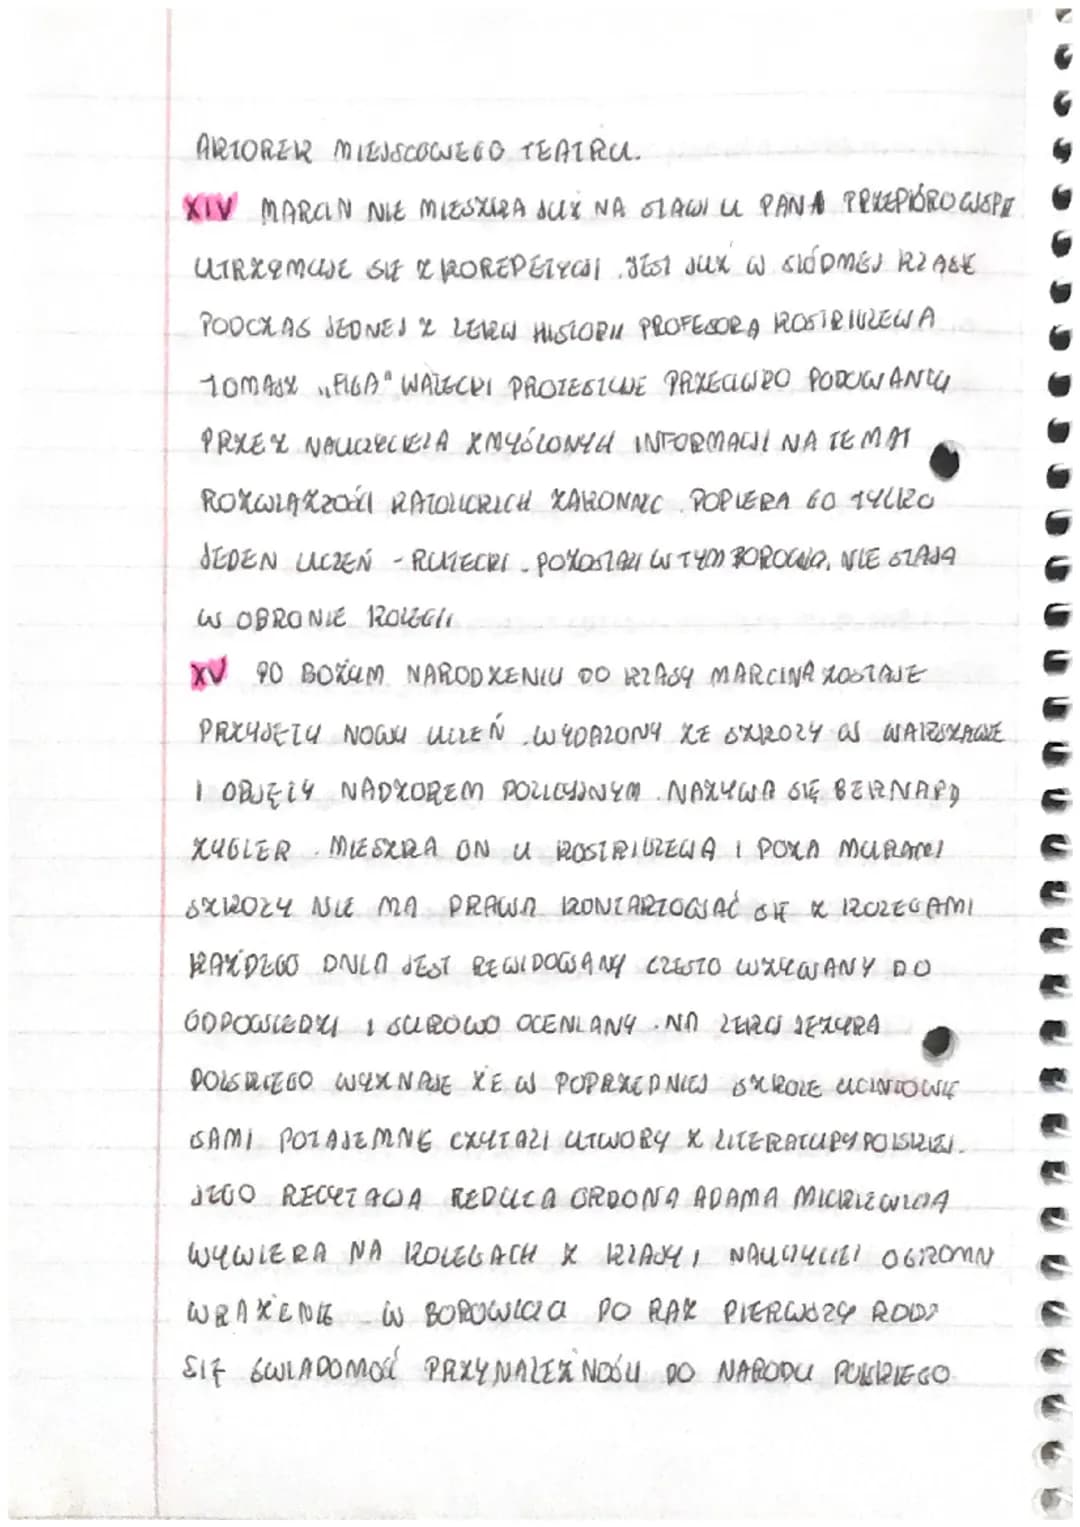 AKTOREK MIEJSCOWEGO TEATRU.
XIV MARCIN NIE MIESZKA JUŻ NA STANCJI U PANA PRZEPIÓRKOWSKI
UTRZYMUJE SIĘ Z KOREPETYCJI. JEST JUŻ W SIÓDMEJ KLASIE
PODCZAS JEDNEJ Z LEKCJI HISTORII PROFESORA KOSTRIULEWA
TOMASZ „FIGA" WALECKI PROTESTUJE PRZECIWKO PODOWANIU
PRZEZ NAUCZYCIELA ZMYŚLONYCH INFORMACJI NA TEMAT
ROZWIĄZŁOŚCI KATOLICKICH ZAKONNIC. POPIERA GO TYLKO
JEDEN UCZEŃ - RUTECKI. POZOSTALI W TYM BOROWICZ, NIE STAJĄ
W OBRONIE KOLEGI
XV PO BOŻYM NARODZENIU DO KLASY MARCINA ZOSTAJE
PRZYJĘTY NOWY UCZEŃ. WYDALONY ZE SZKOŁY W WARSZAWIE
I OBJĘTY NADZOREM POLICYJNYM. NAZYWA SIĘ BERNARD
ZYGIER. MIESZKA ON U KOSTRIULEWA I POZA MURAMI
SZKOŁY NIE MA PRAWA KONTAKTOWAĆ SIĘ Z KOLEGAMI
KAŻDEGO DNIA JEST REWIDOWANY CZĘSTO WZYWANY DO
ODPOWIEDZI I SUROWO OCENIANY. NA LEKCJI JĘZYKA
POLSKIEGO WYZNAJE ŻE W POPRZEDNIEJ SZKOLE UCZNIOWIE
SAMI POTAJEMNE CZYTALI UTWORY Z LITERATURY POLSKIEJ.
JEGO RECYTACJA REDUCA ORDONA ADAMA MICKIEWICZA
WYWIERA NA KOLEGACH Z KLASY I NAUCZYCIELI OGROMN
WRAŻENIE. W BOROWICZU PO RAZ PIERWSZY RODZI
SIĘ ŚWIADOMOŚĆ PRZYNALEŻNOŚCI DO NARODU POLSKIEGO